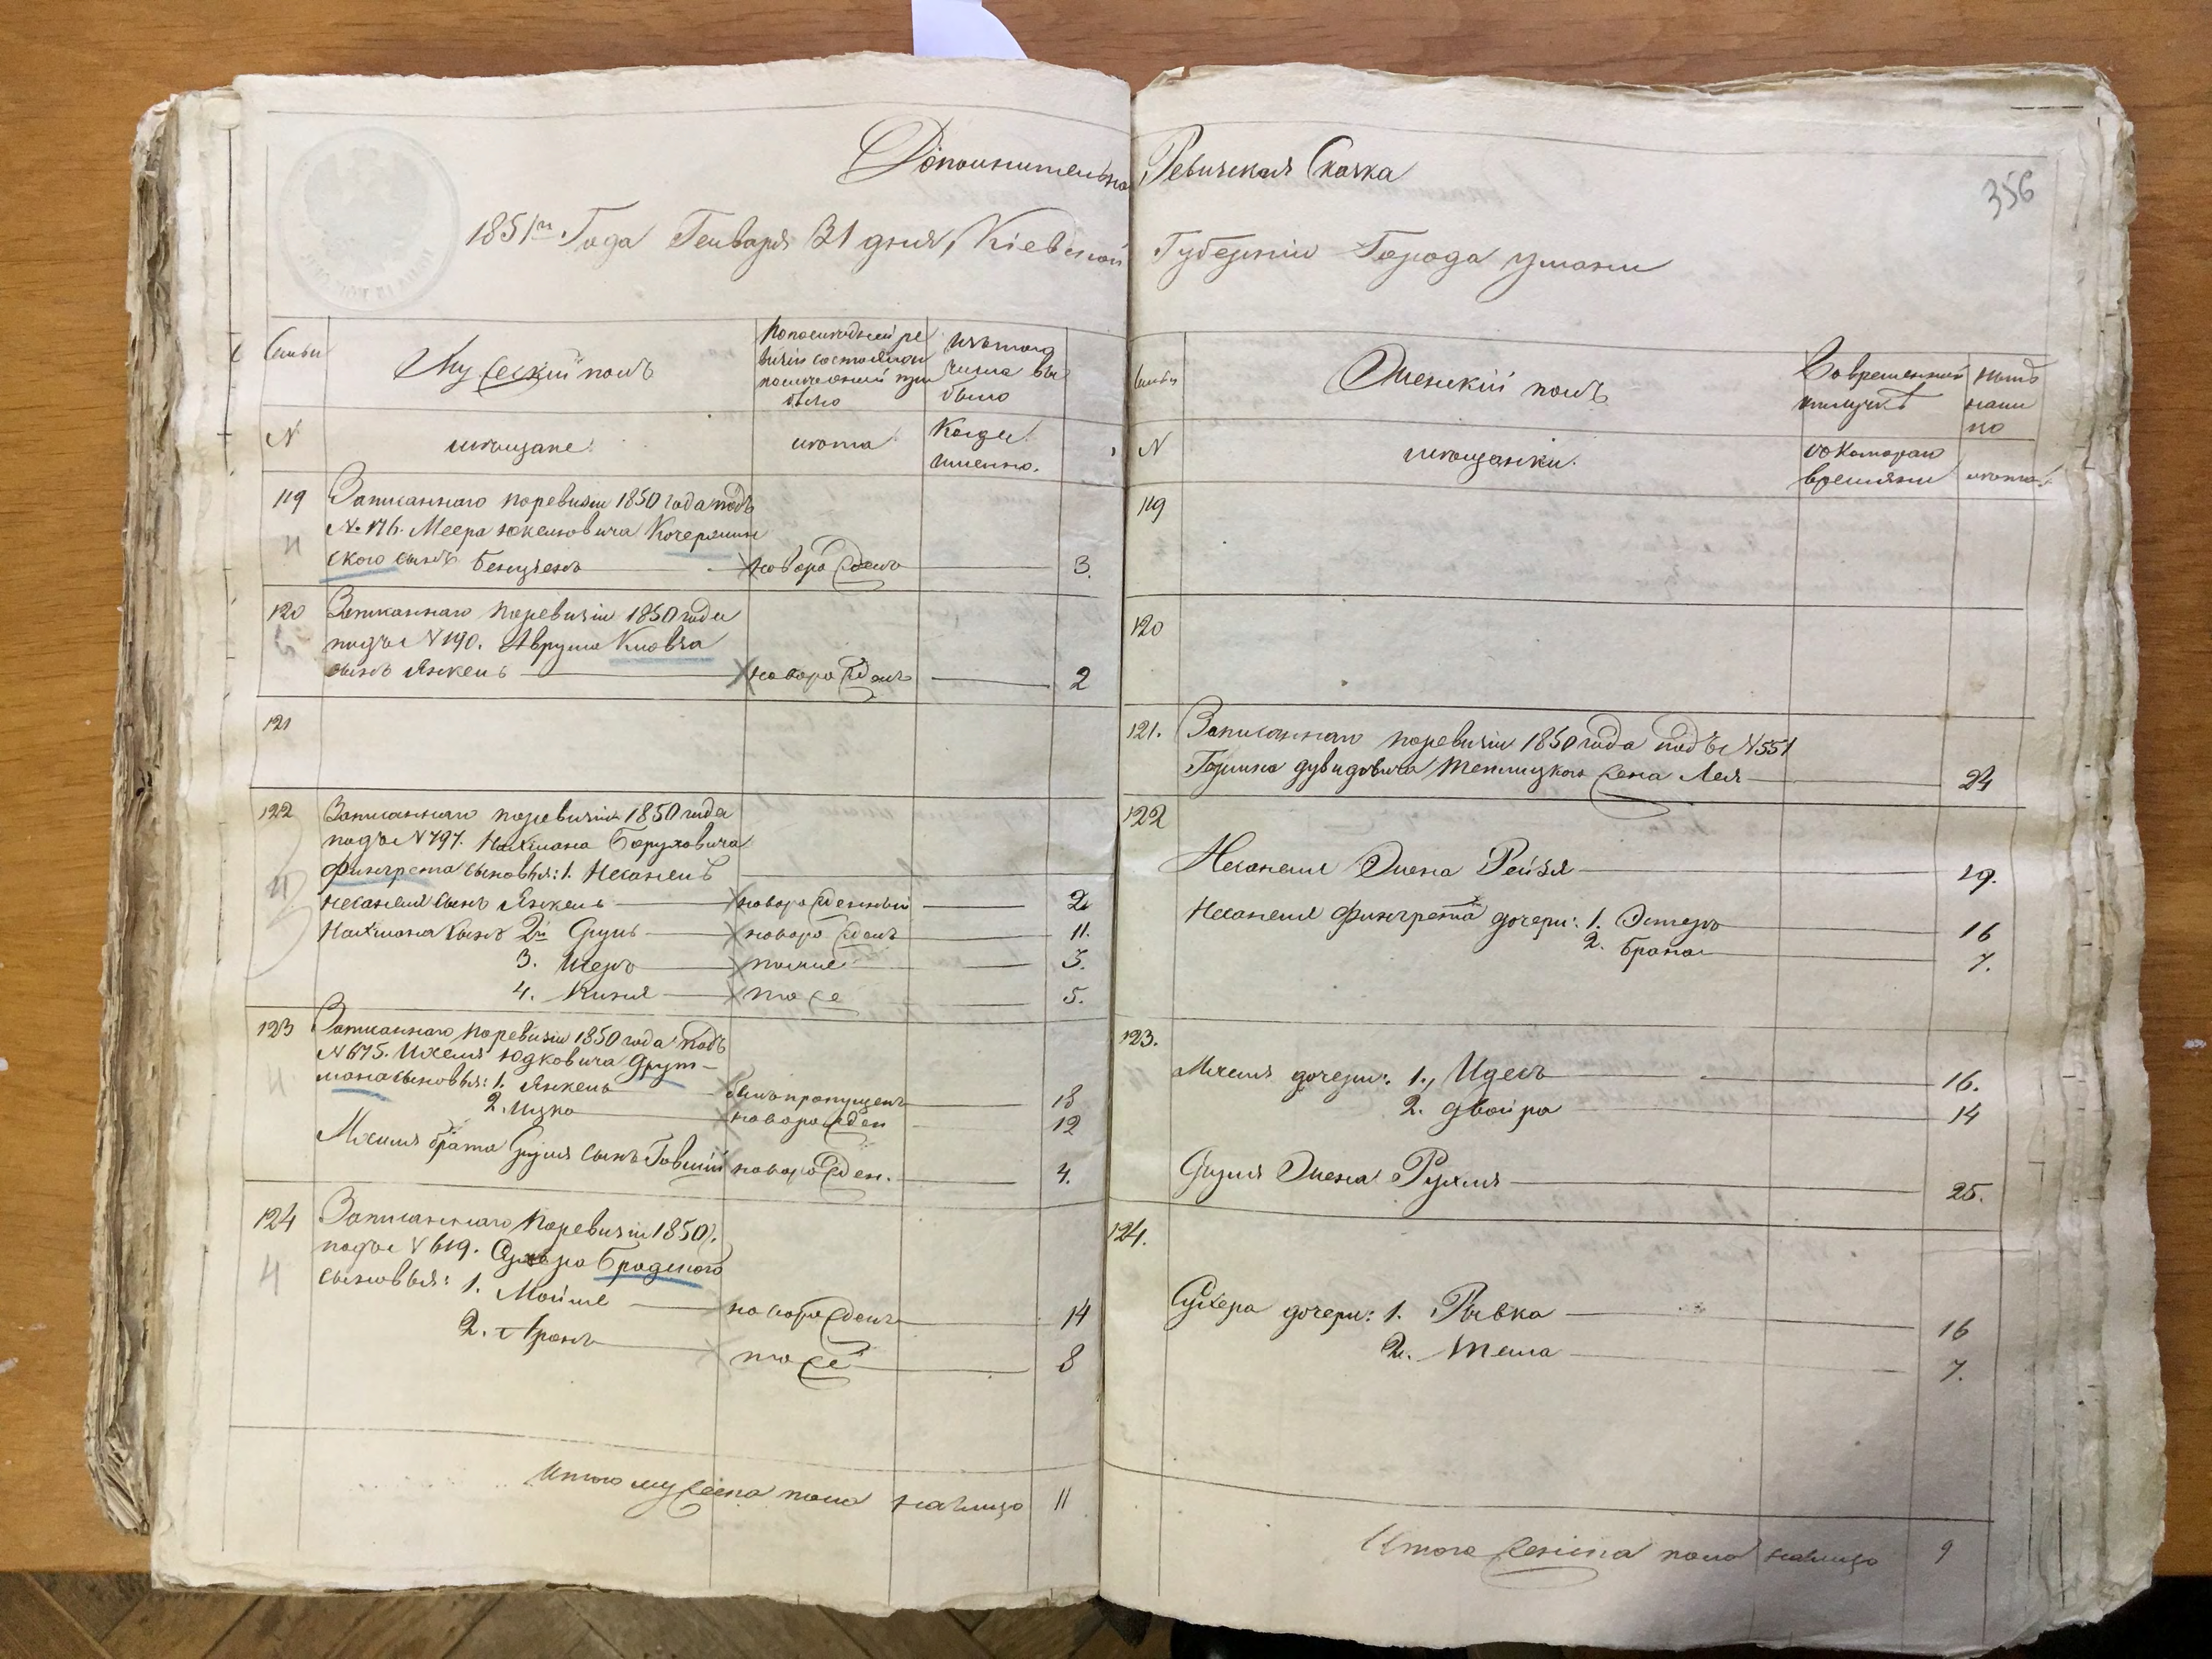 Дополнительная Ревизская Сказка
356
1851го Года Генваря 31 дня, Кіевской Губерніи Города Умани
Семьи
Мужескій полъ
По последней ревизіи состояло и после оной прибыло
Изъ того числа выбыло
N
мещане
лета
Когда именно.
119
Записаннаго по ревизіи 1850 года подъ
N. 176. Меера Юкелевича Кочержин
ского сынъ Бенціенъ новорожденъ 3.
120
Записаннаго по ревизіи 1850 года
подъ N 190. Аврума Кловча
сынъ Янкель новорожденъ 2
121
122
Записаннаго по ревизіи 1850 года
подъ N 797. Нахмана Боруховича
Фингрета сыновья: 1. Несанель
Несанеля сынъ Янкель новорожденный 2
Нахмана сынъ 2й Сруль новорожденъ 11.
3. Шеръ тоже 3.
4. Киня тоже 5.
123
Записаннаго по ревизіи 1850 года подъ
N 675. Ихеля Юдковича Фрут-
мана сыновья: 1. Янкель былъ пропущенъ 18
2. Ицко новорожден 12
Ихеля брата Сруля сынъ Говшій новорожден. 4.
124
Записаннаго по ревизіи 1850 г.
подъ N 619. Сухера Бродского
сыновья: 1. Мойше новорожденъ 14
2. Аронъ тоже 8
Итого мужеска пола налицо 11
Семьи
Женскій полъ
Во временной отлучкѣ
Ныне налицо
N
мещанки.
съ котораго времяни
лета.
119
120
121. Записаннаго по ревизіи 1850 года подъ N 551
Гершка Дувидовича Теплицкого жена Лея 24
122
Несанеля Жена Рейзя 19.
Несанеля Фингрета дочери: 1. Эстеръ 16
2. Брана 7.
123.
Ихеля дочери: 1., Идесъ 16.
2. Двойра 14
Сруля Жена Рухля 25.
124.
Сухера дочери: 1. Рывка 16
2. Тема 7.
Итого женска пола налицо 9